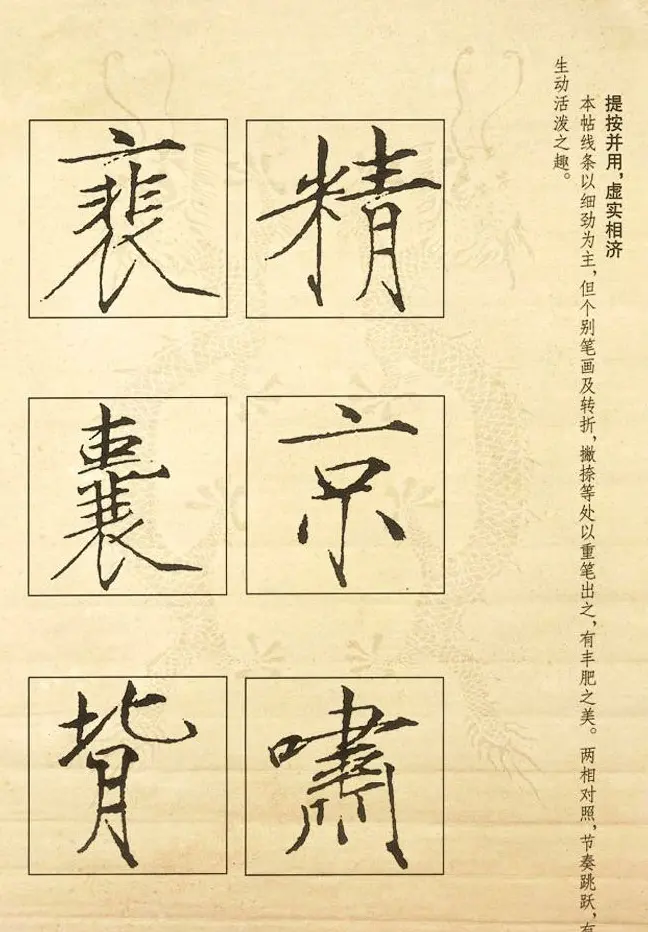 提按并用，虚实相济
本帖线条以细劲为主，但个别笔画及转折，撇捺等处以重笔出之，有丰肥之美。两相对照，节奏跳跃，有
生动活泼之趣。
精
京
嘯
裵
囊
背